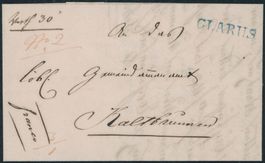 GLARUS
An das
löbl. Gemeindammanamt
Kaltbrunnen
franco